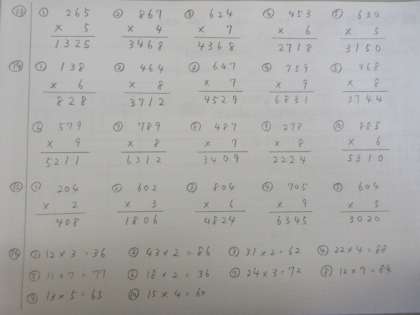 ⑬ ① 265 ② 867 ③ 624 ④ 453 ⑤ 630
× 5 × 4 × 7 × 6 × 5
1325 3468 4368 2718 3150
⑭ ① 138 ② 464 ③ 647 ④ 759 ⑤ 468
× 6 × 8 × 7 × 9 × 8
828 3712 4529 6831 3744
⑥ 579 ⑦ 789 ⑧ 487 ⑨ 278 ⑩ 885
× 9 × 8 × 7 × 8 × 6
5211 6312 3409 2224 5310
⑮ ① 204 ② 602 ③ 804 ④ 705 ⑤ 604
× 2 × 3 × 6 × 9 × 5
408 1806 4824 6345 3020
⑯ ① 12 × 3 = 36 ② 43 × 2 = 86 ③ 31 × 2 = 62 ④ 22 × 4 = 88
⑤ 11 × 7 = 77 ⑥ 18 × 2 = 36 ⑦ 24 × 3 = 72 ⑧ 12 × 7 = 84
⑨ 13 × 5 = 65 ⑩ 15 × 4 = 60